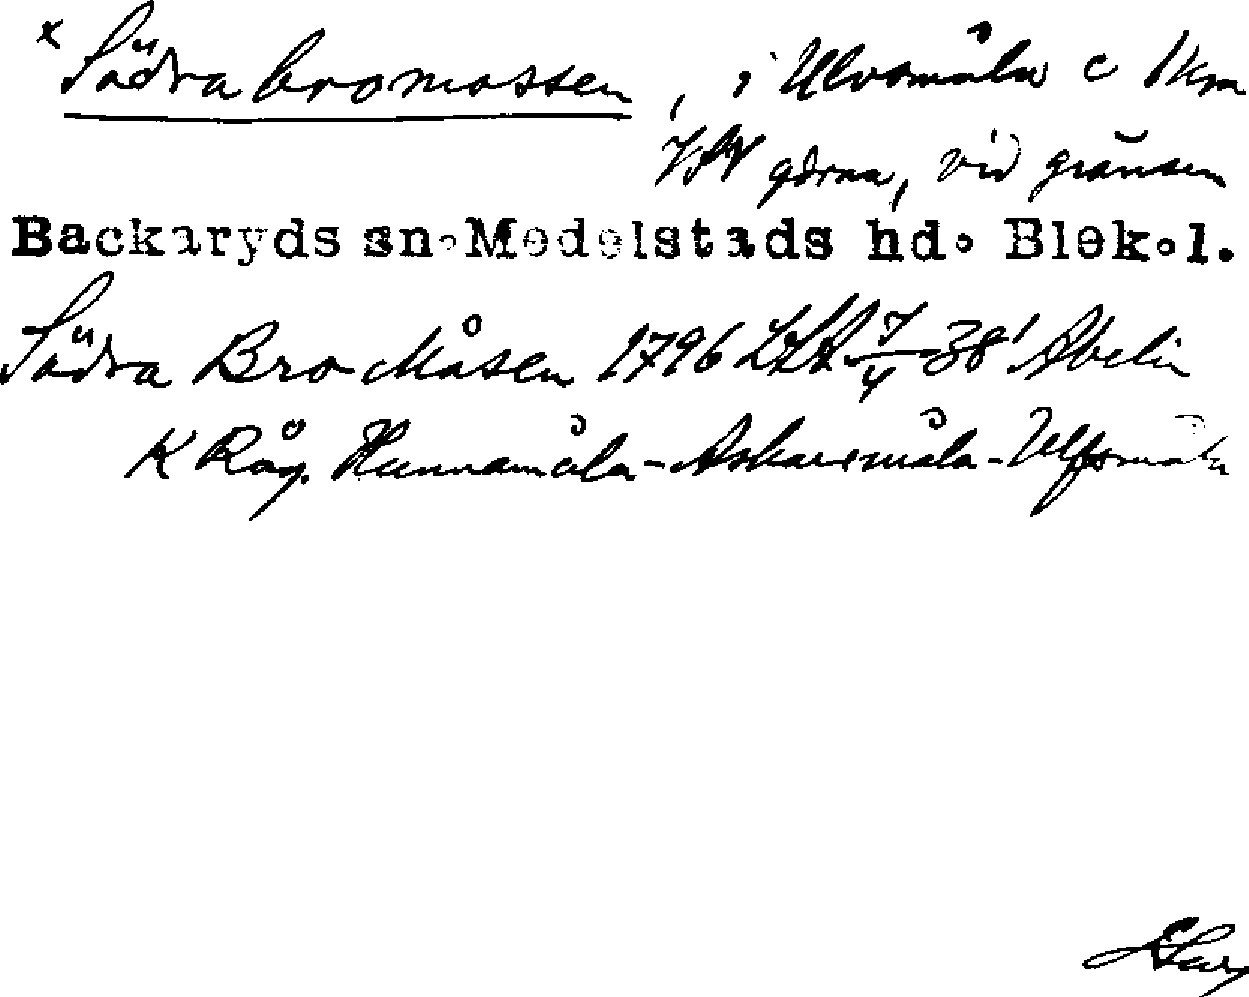 x Södra bromossen, i Ulvsmåla c 1 km
VSV gdrna, vid gränsen
Backaryds sn. Medelstads hd. Blek. l.
Södra Bro Måsen 1796 LSA 7/4 38' Abelin
K Råg. Hunnamåla - Askaremåla - Ulfsmåla